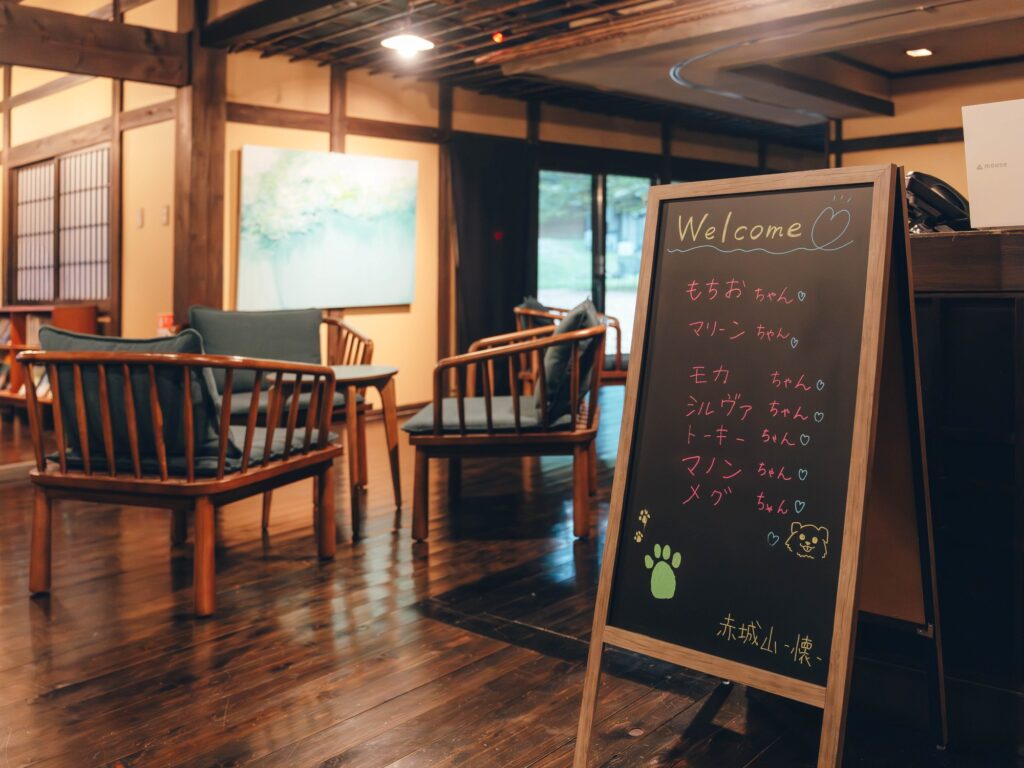 Welcome
もちおちゃん
マリーンちゃん
モカ ちゃん
シルヴァちゃん
トーキーちゃん
マノンちゃん
メグ ちゃん
赤城山-懐-
mouse